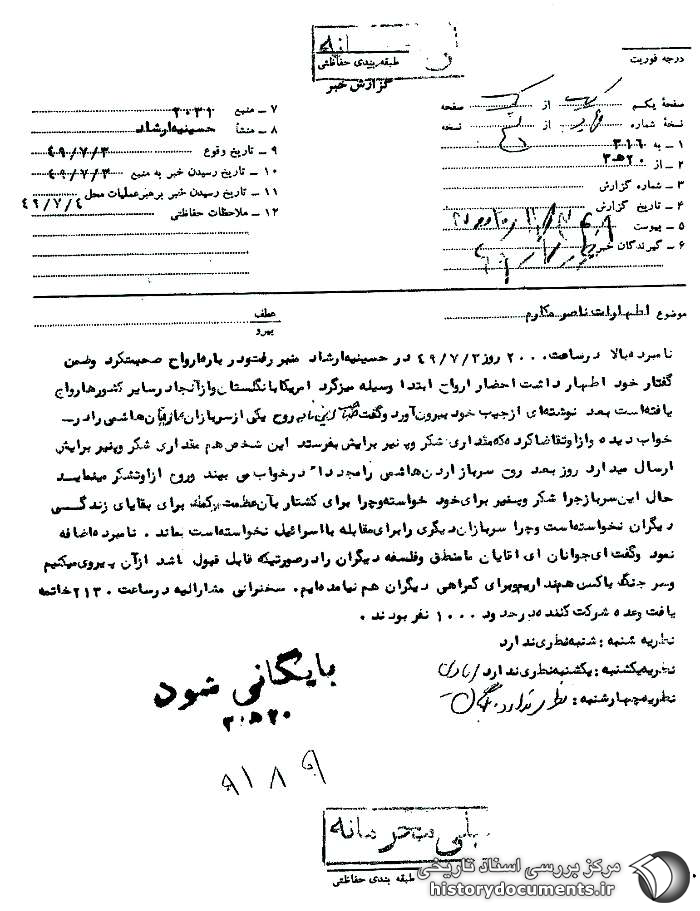 طبقه بندی حفاظتی
گزارش خبر
درجه فوریت
صفحهٔ یکم از یک صفحه
نسخهٔ شماره از نسخه
۱ ــ به ۳۱۶
۲ ــ از ۲۰ھ۳
۳ ــ شماره گزارش
۴ ــ تاریخ گزارش
۵ ــ پیوست
۶ ــ گیرندگان خبر
۷ ــ منبع ۲۰۳۱
۸ ــ منشأ حسینیه ارشاد
۹ ــ تاریخ وقوع ۴۹/۷/۳
۱۰ ــ تاریخ رسیدن خبر به منبع ۴۹/۷/۳
۱۱ ــ تاریخ رسیدن خبر برهبر عملیات محل ۴۹/۷/۴
۱۲ ــ ملاحظات حفاظتی
موضوع اظهارات ناصر مکارم
عطف
پیرو
نامبرده بالا در ساعت ۲۰۰۰ روز ۴۹/۷/۳ در حسینیه ارشاد منبر رفته و درباره ارواح صحبت کرد و ضمن
گفتار خود اظهار داشت احضار ارواح ابتدا وسیله میزگرد امریکا بانگلستان و از آنجا در سایر کشورها رواج
یافته است بعد نوشته‌ای از جیب خود بیرون آورد و گفت روح یکی از سربازان هاشمی را در
خواب دیده و از او تقاضا کرد که مقداری شکر و پنیر برایش بفرستد این شخص هم مقداری شکر و پنیر برایش
ارسال میدارد روز بعد روح سرباز اردن هاشمی را مجدداً در خواب می بیند و روح از او تشکر مینماید
حال این سرباز چرا شکر و پنیر برای خود خواسته و چرا برای کشتار بآن عظمت برای بقایای زندگی
دیگران نخواسته است و چرا سربازان دیگری را برای مقابله با اسرائیل نخواسته است بماند . نامبرده اضافه
نمود و گفت ای جوانان ای آقایان ما منطق و فلسفه دیگران را در صورتیکه قابل قبول باشد از آن پیروی میکنیم
و سر جنگ با کس هم نداریم و برای گمراهی دیگران هم نیامده‌ایم. سخنرانی مشارالیه در ساعت ۲۱۳۰ خاتمه
یافت و عده شرکت کننده در حدود ۱۰۰۰ نفر بودند .
نظریه شنبه : شنبه نظری ندارد
نظریه یکشنبه : یکشنبه نظری ندارد
نظریه چهارشنبه : نظری ندارد.
بایگانی شود
۲۰ھ۳
۹۱۸۹
خیلی محرمانه
طبقه بندی حفاظتی
مرکز بررسی اسناد تاریخی
historydocuments.ir